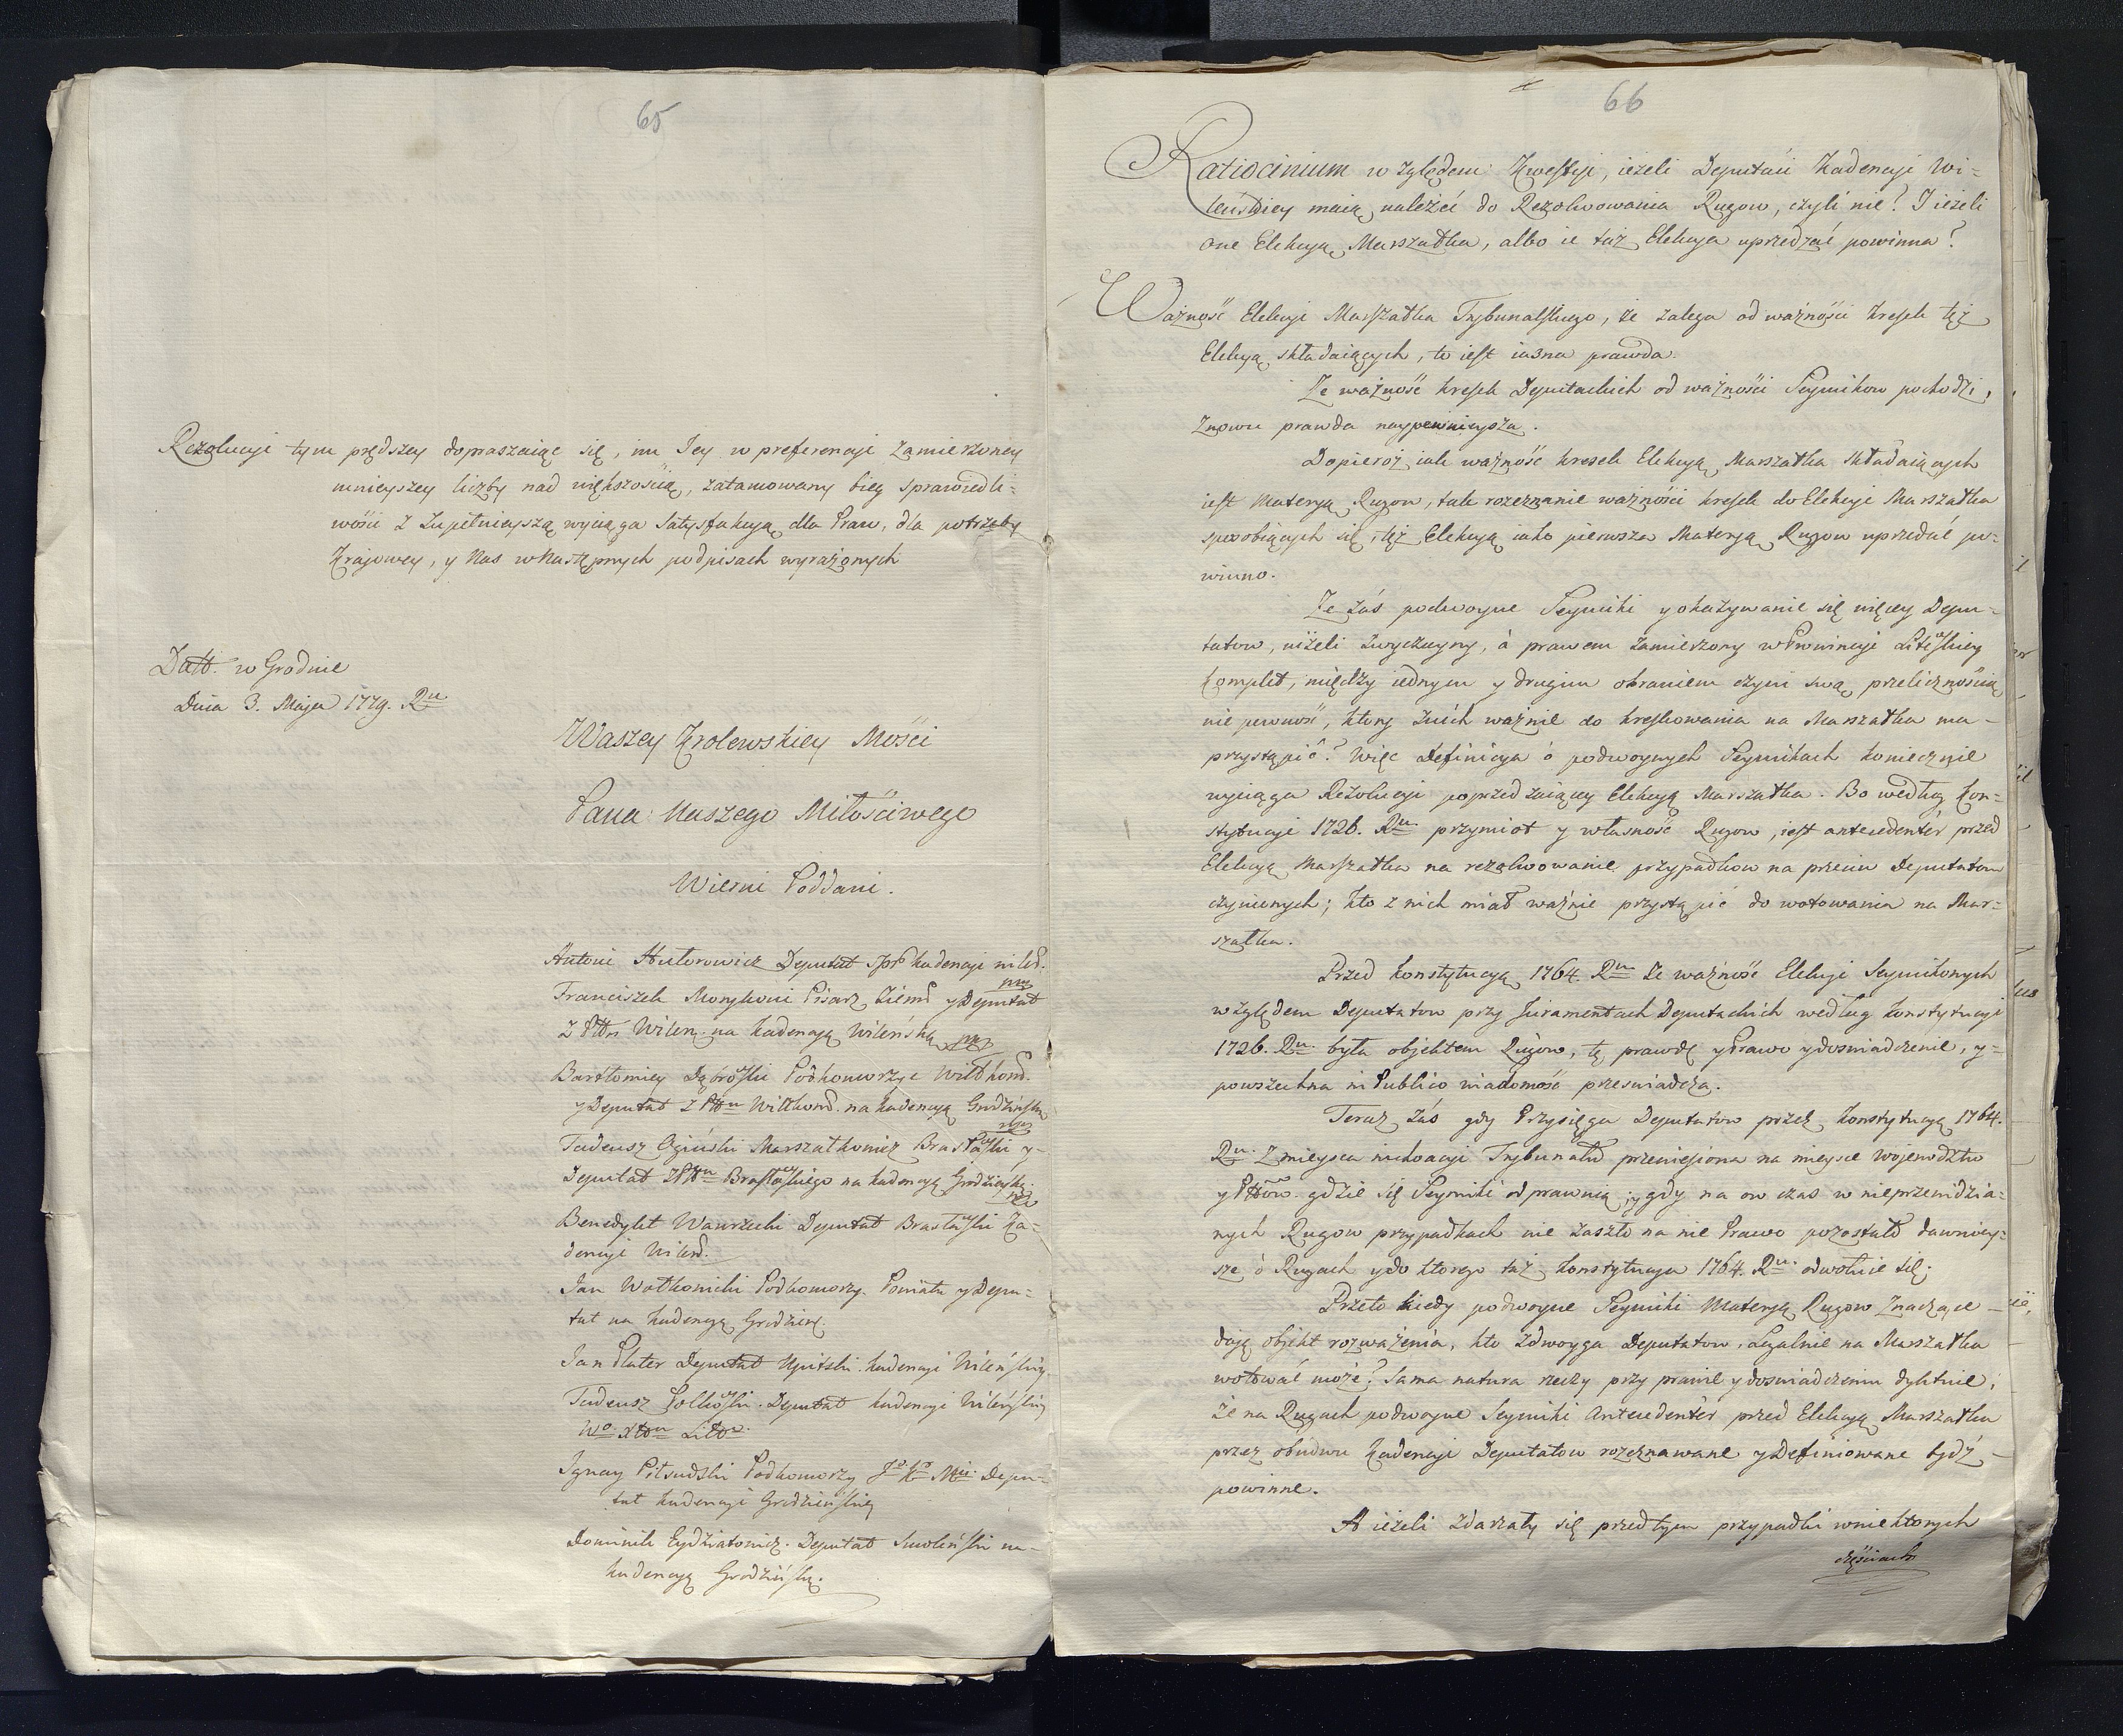 65
Rezolucyi tym prędszey dopraszaiąc się, im Jey w preferencyi zamierzoney
mnieyszey liczby nad większością, zatamowany bieg sprawiedli=
wości z zupełnieyszą wyciąga satysfakcyą dla Praw, dla potrzeby
Krajowey, y Nas w następnych podpisach wyrażonych
Datt. w Grodnie
Dnia 3. Maja 1779. Ru
Waszey Krolewskiey Mości
Pana Naszego Miłościwego
Wierni Poddani.
Antoni Deputat kadencyi wileń.
Franciszek Morykoni Pisarz Ziems y Deputat
z Pttu Wilkm. na kadencyą Wileńską mp
Bartłomiey Podkomorzyc Wiłkom.
y Deputat z Pttu Wiłkom. na kadencyą Grodzińską
mp
Tadeusz Ogiński Marszałkowicz Brasławski y
Deputat z Pttu Brasławskiego na kadencyą Grodzieńską
mp
Benedykt Wawrzecki Deputat Brasławski Ka=
dencyi Wileń.
Jan Wołkowicki Podkomorzy Powiatu y Depu=
tat na kadencyą Grodzień.
Jan Plater Deputat Upitski kadencyi Wileńskiey
Tadeusz Deputat kadencyi Wileńskiey
Wo Xttwu Littw.
Ignacy Piłsudzki Podkomorzy Depu=
tat kadencyi Grodzieńskiey
Dominik Eydziatowicz Deputat Smoleński na
kadencyą Grodzińską.
66
Ratiocinium względem Kwestyi, ieżeli Deputaci Kadencyi Wi=
leńskiey maią należeć do Rezolwowania Rugow, czyli nie? I ieżeli
one Elekcyą Marszałka, albo ie taż Elekcya uprzedzać powinna?
Ważność Elekcyi Marszałka Trybunalskiego, że zalega od ważności kresek tęż
Elekcyą składaiących, to iest iasna prawda.
Że ważność kresek Deputackich od ważności Seymikow pochodzi,
znowu prawda naypewnieysza.
Dopieroż iak ważność kresek Elekcyą Marszałka składaiących
iest Materyą Rugow, tak rozeznanie ważności kresek do Elekcyi Marszałka
sposobiących się, tęż Elekcyą iako pierwsza Materyą Rugow uprzedać po=
winno.
Że zaś podwoyne Seymiki y okazywanie się więcey Depu=
tatow, niżeli zwyczayny, à prawem zamierzony w Prowincyi Littskiey
komplet, między iednym y drugim obraniem czyni swą przelicznością
nie pewność, ktory z nich ważnie do kreskowania na Marszałka ma
przystąpić? Więc Definicya ò podwoynych Seymikach koniecznie
wyciąga Rezolucyi poprzedzaiącey Elekcyą Marszałka. Bo według Kon=
stytucyi 1726. Ru przymiot y własność Rugow, iest antecedenter przed
Elekcyą Marszałka na rezolwowanie przypadkow na przeciw Deputatom
czynionych; kto z nich miał ważnie przystąpić do wotowania na Mar=
szałka.
Przed Konstytucyą 1764. Ru że ważność Elekcyi Seymikowych
względem Deputatow przy Juramentach Deputackich według Konstytucyi
1726. Ru. była objektem Rugow, tę prawdę y Prawo y doswiadczenie, y
powszechna in Publico wiadomość przeswiadcza.
Teraz zaś gdy Przysięga Deputatow przez Konstytucyą 1764.
Ru. z mieysca inchoacyi Trybunału przeniesiona na mieysce Wojewodztw
y Pttow gdzie się Seymiki odprawuią; y gdy na on czas w nieprzewidzia=
nych Rugow przypadkach nie zaszło na nie Prawo pozostało dawniey=
sze ò Rugach y do ktorego taż Konstytucya 1764. Ru. odwołuie się.
Przeto kiedy podwoyne Seymiki Materyą Rugow znaczące
daią objekt rozważenia, kto z dwoyga Deputatow, Legalnie na Marszałka
wotować może? Sama natura rzeczy przy prawie y doswiadczeniu dyktuie,
że na Rugach podwoyne Seymiki Antecedenter przed Elekcyą Marszałka
przez obudwu Kadencyi Deputatow rozeznawane y definiowane bydź
powinne.
A ieżeli zdarzały się przed tym przypadki w niektorych
częściach